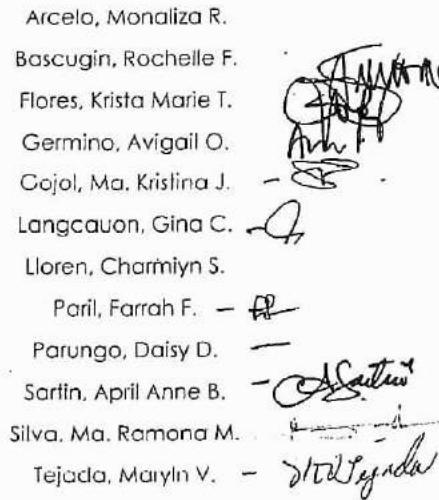 Arcelo, Monaliza R.
Bascugin, Rochelle F.
Flores, Krista Marie T.
Germino, Avigail O.
Gojol, Ma. Kristina J. -
Langcauon, Gina C. -
Lloren, Charmlyn S.
Paril, Farrah F. -
Parungo, Daisy D. -
Sartin, April Anne B. - A.Sartin
Silva, Ma. Ramona M.
Tejada, Maryln V. -